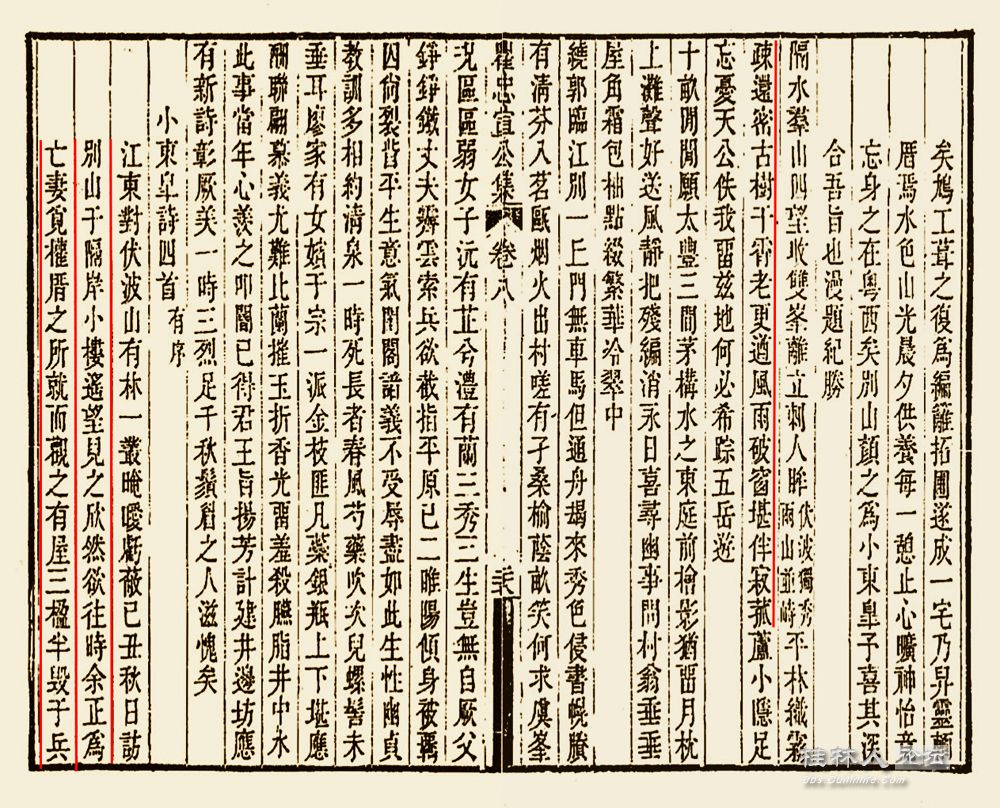 矣鳩工葺之復爲編籬拓圃遂成一宅乃昇靈輀
厝焉水色山光晨夕供養每一憩止心曠神怡竟
忘身之在粤西矣別山顔之爲小東皐子喜其深
合吾旨也漫題紀勝
隔水羣山四望收雙峯離立刺人眸伏波獨秀兩山並峙平林織霧
疎還密古樹干霄老更遒風雨破窗堪伴寂菰蘆小隱足
忘憂天公佚我畱兹地何必希踪五岳遊
十畝閒閒願太豐三間茅構水之東庭前檜影猶畱月枕
上灘聲好送風靜把殘編消永日喜尋幽事問村翁垂垂
屋角霜包柚點綴繁華冷翠中
繞郭臨江別一丘門無車馬但通舟朅來秀色侵書幌賸
有清芬入茗甌烟火出村嗟有孑桑榆蔭畝笑何求虞峯
瞿忠宣公集 卷八
況區區弱女子沅有芷兮澧有蘭三秀三生豈無自厥父
錚錚鐵丈夫嶰雲索兵欲截指平原已二唯陽傾身被羈
囚尙裂眥平生意氣閨閤諳義不受辱盡如此生性幽貞
教訓多相約清泉一時死長者春風芍藥吹次兒螺髻未
垂耳廖家有女嬪于宗一派金枝匪凡蘂銀瓶上下堪應
酬聯翩慕義尤難比蘭摧玉折香光畱羞殺臙脂井中水
此事當年心羨之叩閽已得君王旨揚芳計建井邊坊應
有新詩彰厥美一時三烈足千秋鬚眉之人滋愧矣
小東皐詩四首 有序
江東對伏波山有林一叢晻曖虧蔽己丑秋日訪
別山于隔岸小樓遙望見之欣然欲往時余正爲
亡妻覓權厝之所就而觀之有屋三楹半毀于兵
桂林人论坛
bbs.guilinlife.com